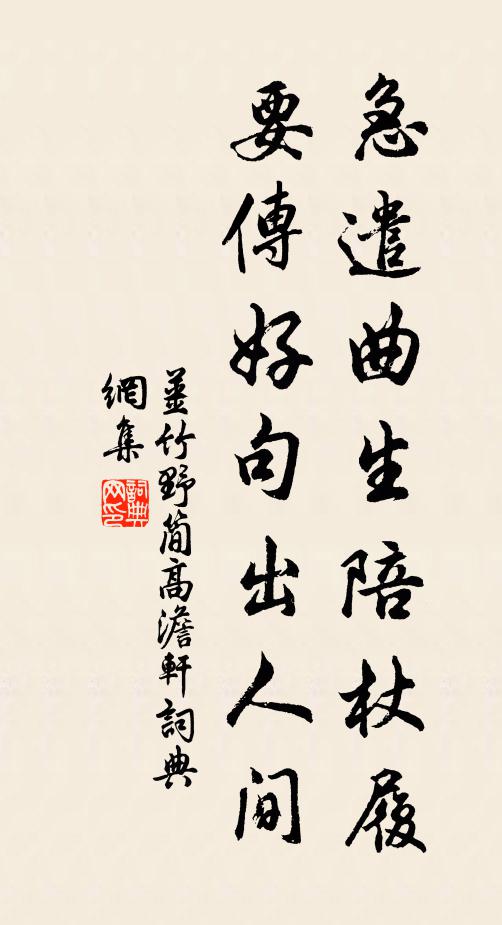 急遣曲生陪杖履
要傳好句出人間
姜竹野簡高澹軒詞典
網集
詞典
网印